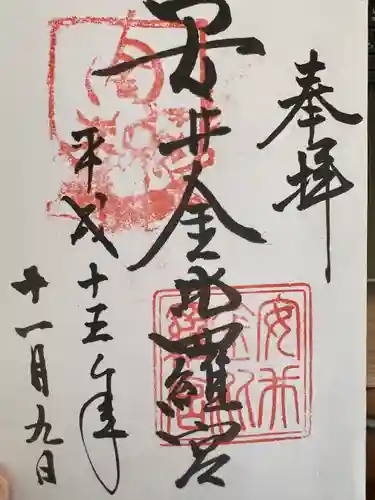 奉拝
安井金比羅宮
平成十五年
十一月九日
安井
金比
羅宮